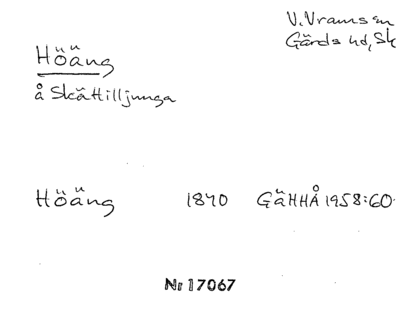 V. Vrams sn
Gärds hd, Sk
Höäng
å Skättilljunga
Höäng 1870 GäHHÅ 1958:60
Nr 17067